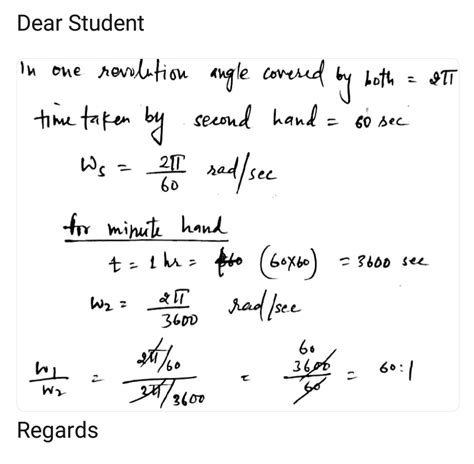 Dear Student
In one revolution angle covered by both = 2π
time taken by second hand = 60 sec
Ws = 2π/60 rad/sec
for minute hand
t = 1 hr = (60x60) = 3600 sec
W2 = 2π/3600 rad/sec
W1/W2 = (2π/60)/(2π/3600) = 3600/60 60 = 60:1
Regards